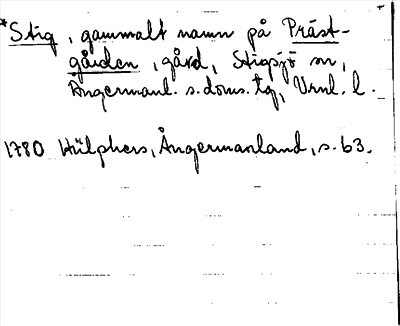 *Stig, gammalt namn på Präst-
gården, gård, Stigsjö sn,
Ångermanl. s. doms. tg, Vrnl. l.
1780 Hülphers, Ångermanland, s. 63.